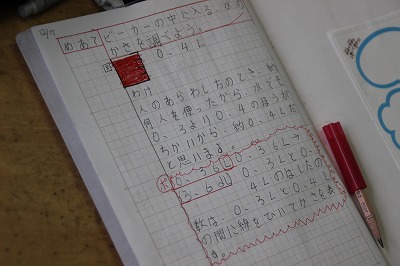 めあて ビーカーの中に入る水の
かさを調べよう。
0.4L
わけ
人のあらわし方のとき、約
何人を使ったから、水でも
0.3より0.4のほうが
ちかいから、約0.4Lだ
と思います。
0.36L 0.36Lと
3.6dL 0.3Lと0.
4Lのはしたの
数は、0.3Lと0.4L
の間に線をひいてかさを表
す。